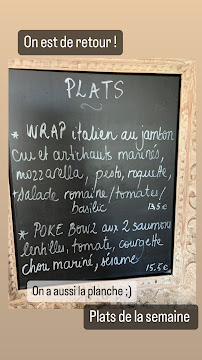 On est de retour !
PLATS
* WRAP italien au jambon
cru et artichauts marinés,
mozzarella, pesto, roquette,
+salade romaine/tomates/
basilic 13.5€
* POKE BOWL aux 2 saumons
lentilles, tomate, courgette
chou mariné, sésame
15.5€
On a aussi la planche ;)
Plats de la semaine